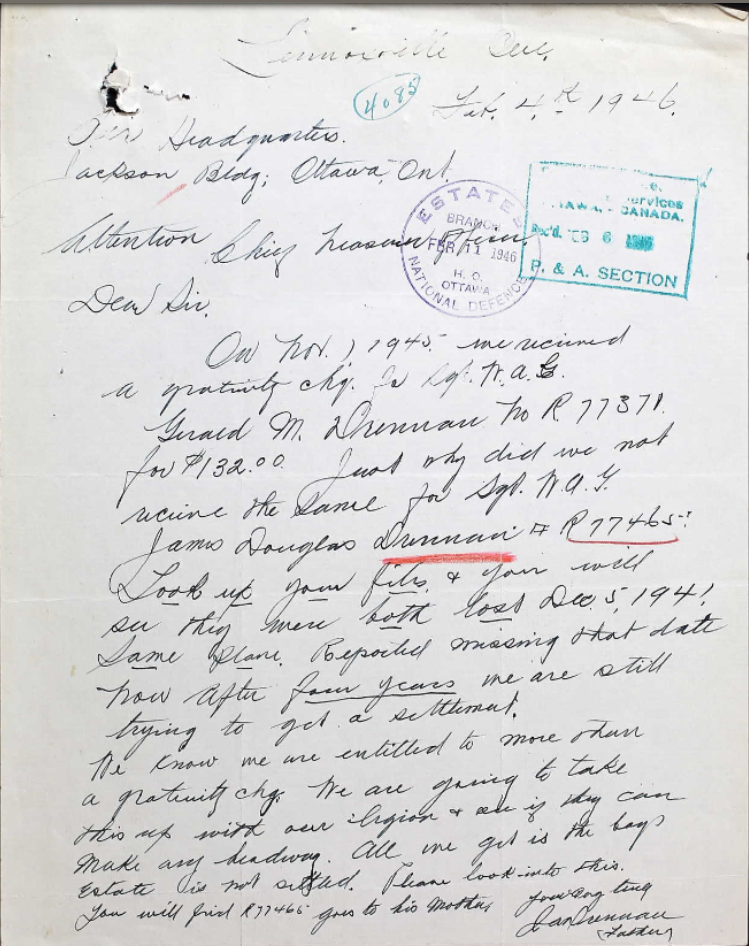 Lennoxville Que.
4085
Feb. 4th 1946.
Headquarters.
Jackson Bldg; Ottawa, Ont.
ESTATES
BRANCH
FEB 11 1946
H. O.
OTTAWA
NATIONAL DEFENCE
ervices
TAWA, CANADA.
Rec'd. FEB 6 1946
P. & A. SECTION
Attention Chief Treasury Officer.
Dear Sir.
On Nov. 1, 1945 we recieved
a gratuity chq. Sgt. W.A.G.
Gerald M. Drennan No R 77371.
for $132.00. Just why did we not
recieve the same for Sgt. W.A.G.
James Douglas Drennan # R 77465.
Look up your files & you will
see they were both lost Dec. 5, 1941.
Same plane. Reported missing that date
Now after four years we are still
trying to get a settlement.
We know we are entitled to more than
a gratuity chq. We are going to take
this up with our Legion & see if they can
make any headway. All we get is the boys
Estate is not settled. Please look into this.
You will find R77465 goes to his Mother,
Drennan
(Father)